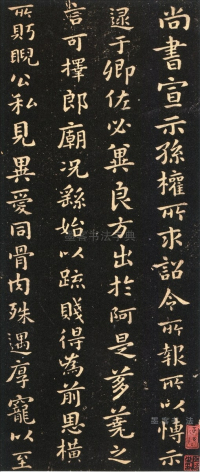 尚書宣示孫權所求詔令所報所以博示
逮于卿佐必冀良方出於阿是芻蕘之
言可擇郎廟況繇始以疏賤得為前恩橫
所䀦睨公私見異愛同骨肉殊遇厚寵以至